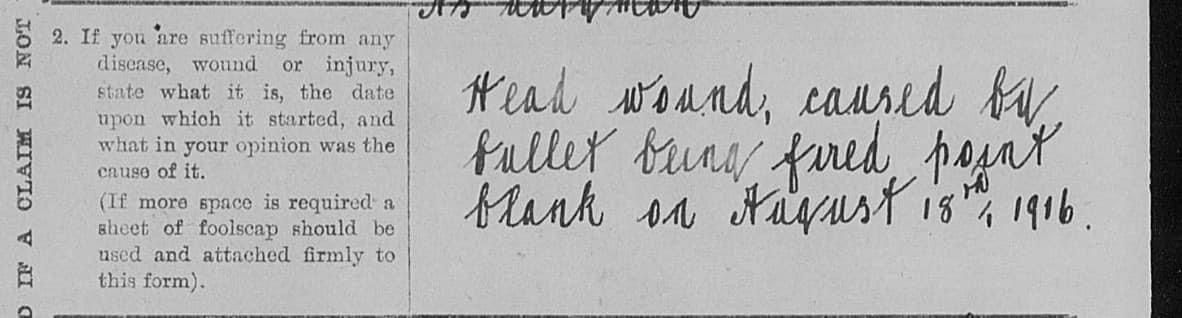 2. If you are suffering from any
disease, wound or injury,
state what it is, the date
upon which it started, and
what in your opinion was the
cause of it.
(If more space is required a
sheet of foolscap should be
used and attached firmly to
this form).
Head wound, caused by
bullet being fired point
blank on August 18th, 1916.
IF A CLAIM IS NOT